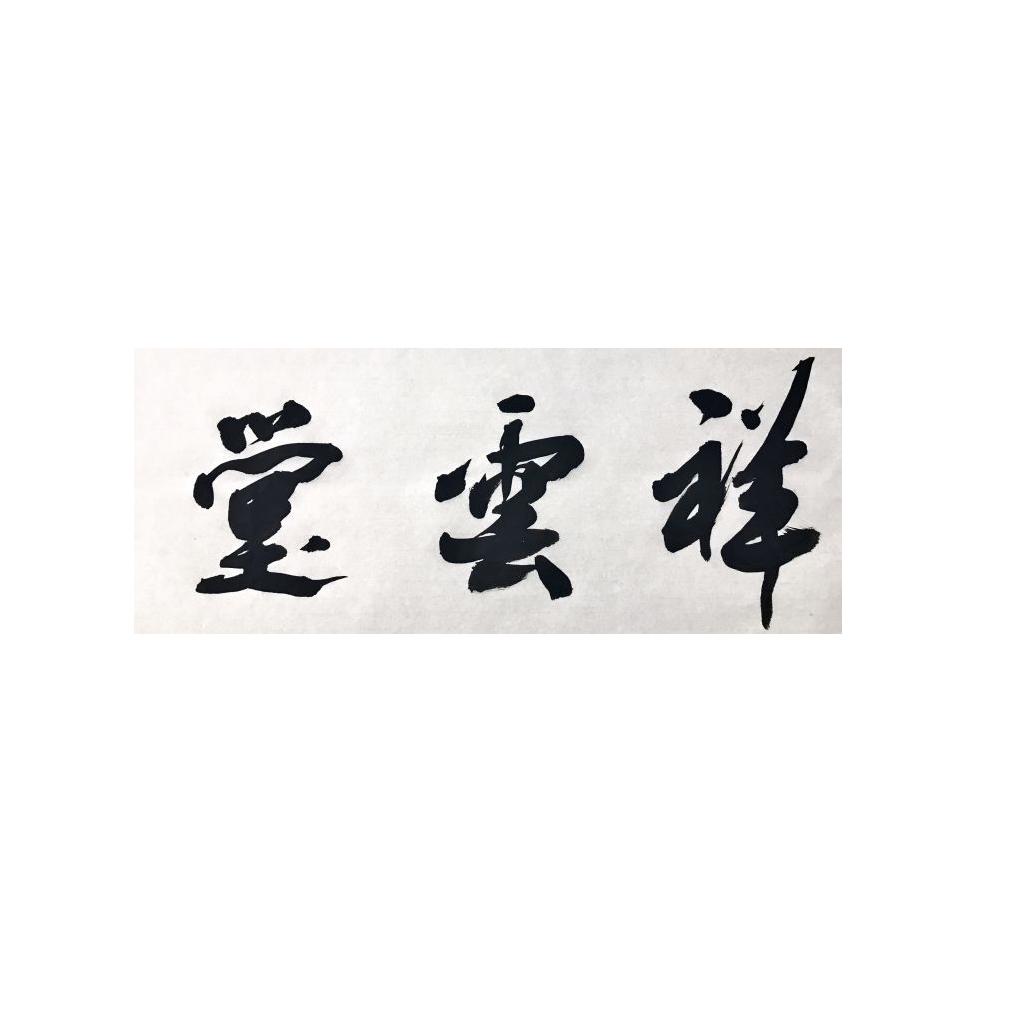 祥雲堂